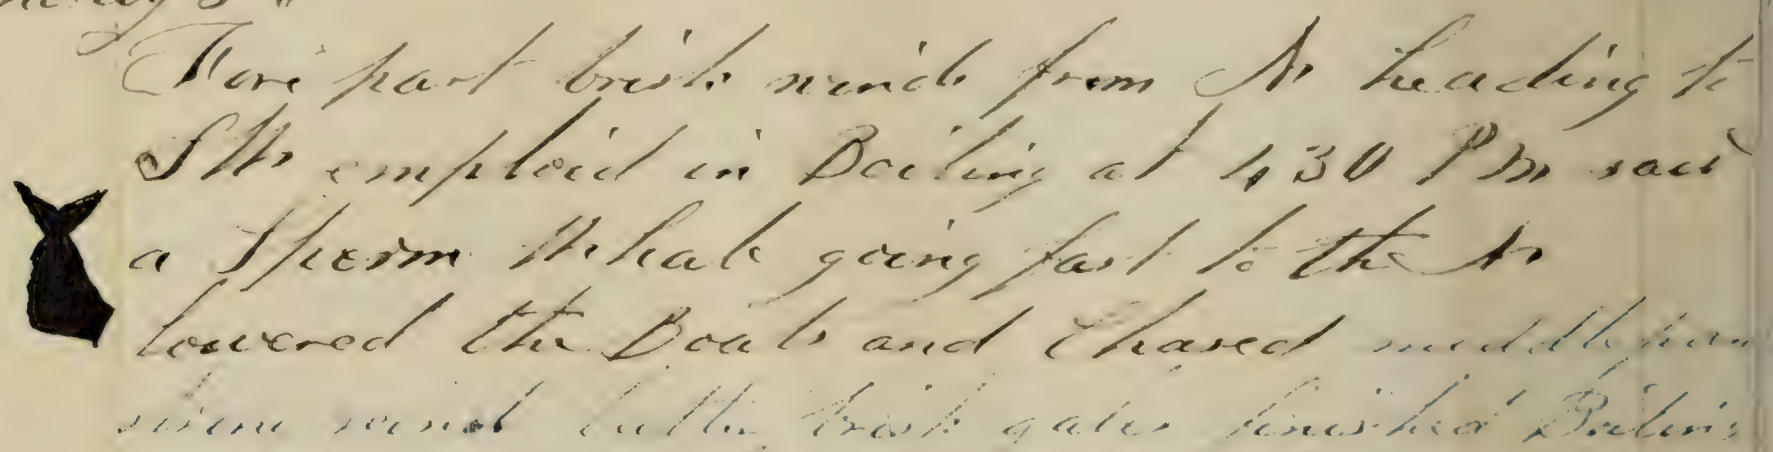 Fore part brisk winds from N heading to
SW emploid in Boiling at 4 30 PM saw
a Sperm Whale going fast to the N
lowered the Boats and Chased middle part
wind latter brisk gales finished Boiling